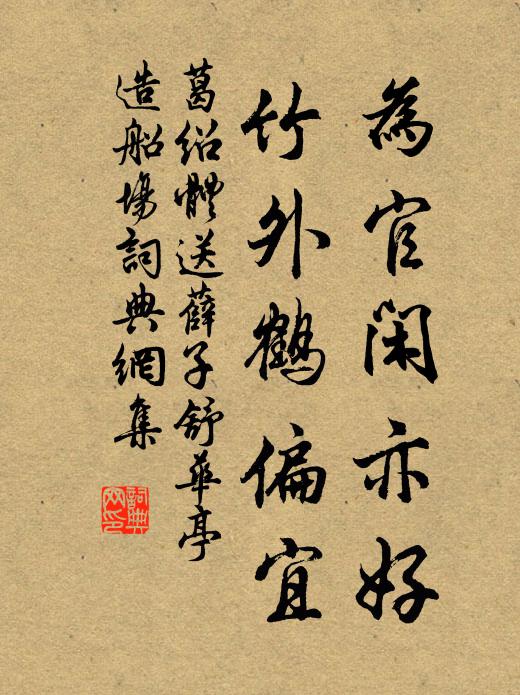 為官閑亦好
竹外鶴偏宜
葛绍體送薛子舒華亭
造船場詞典網集
詞典网印